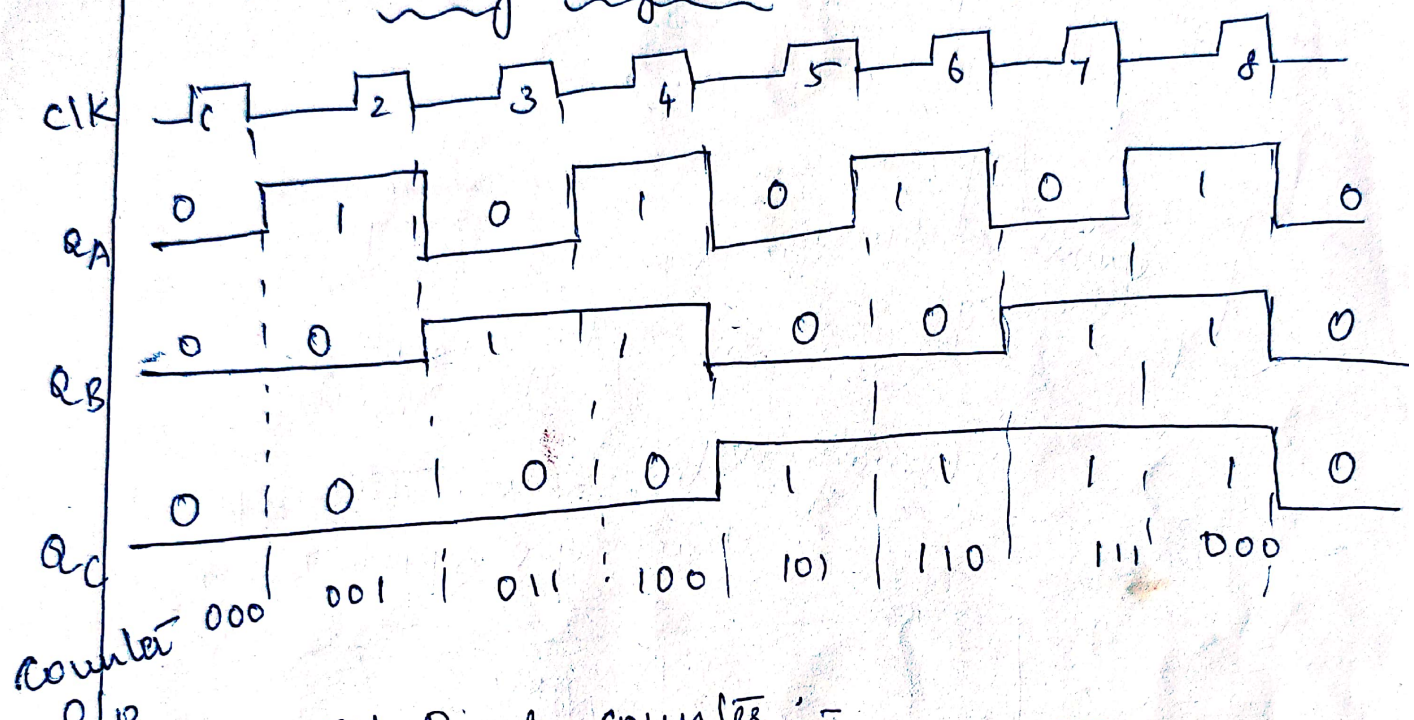 CLK 1 2 3 4 5 6 7 8
QA 0 1 0 1 0 1 0 1 0
QB 0 0 1 1 0 0 1 1 0
QC 0 0 0 0 1 1 1 1 0
000 001 011 100 101 110 111 000
counter
O/P